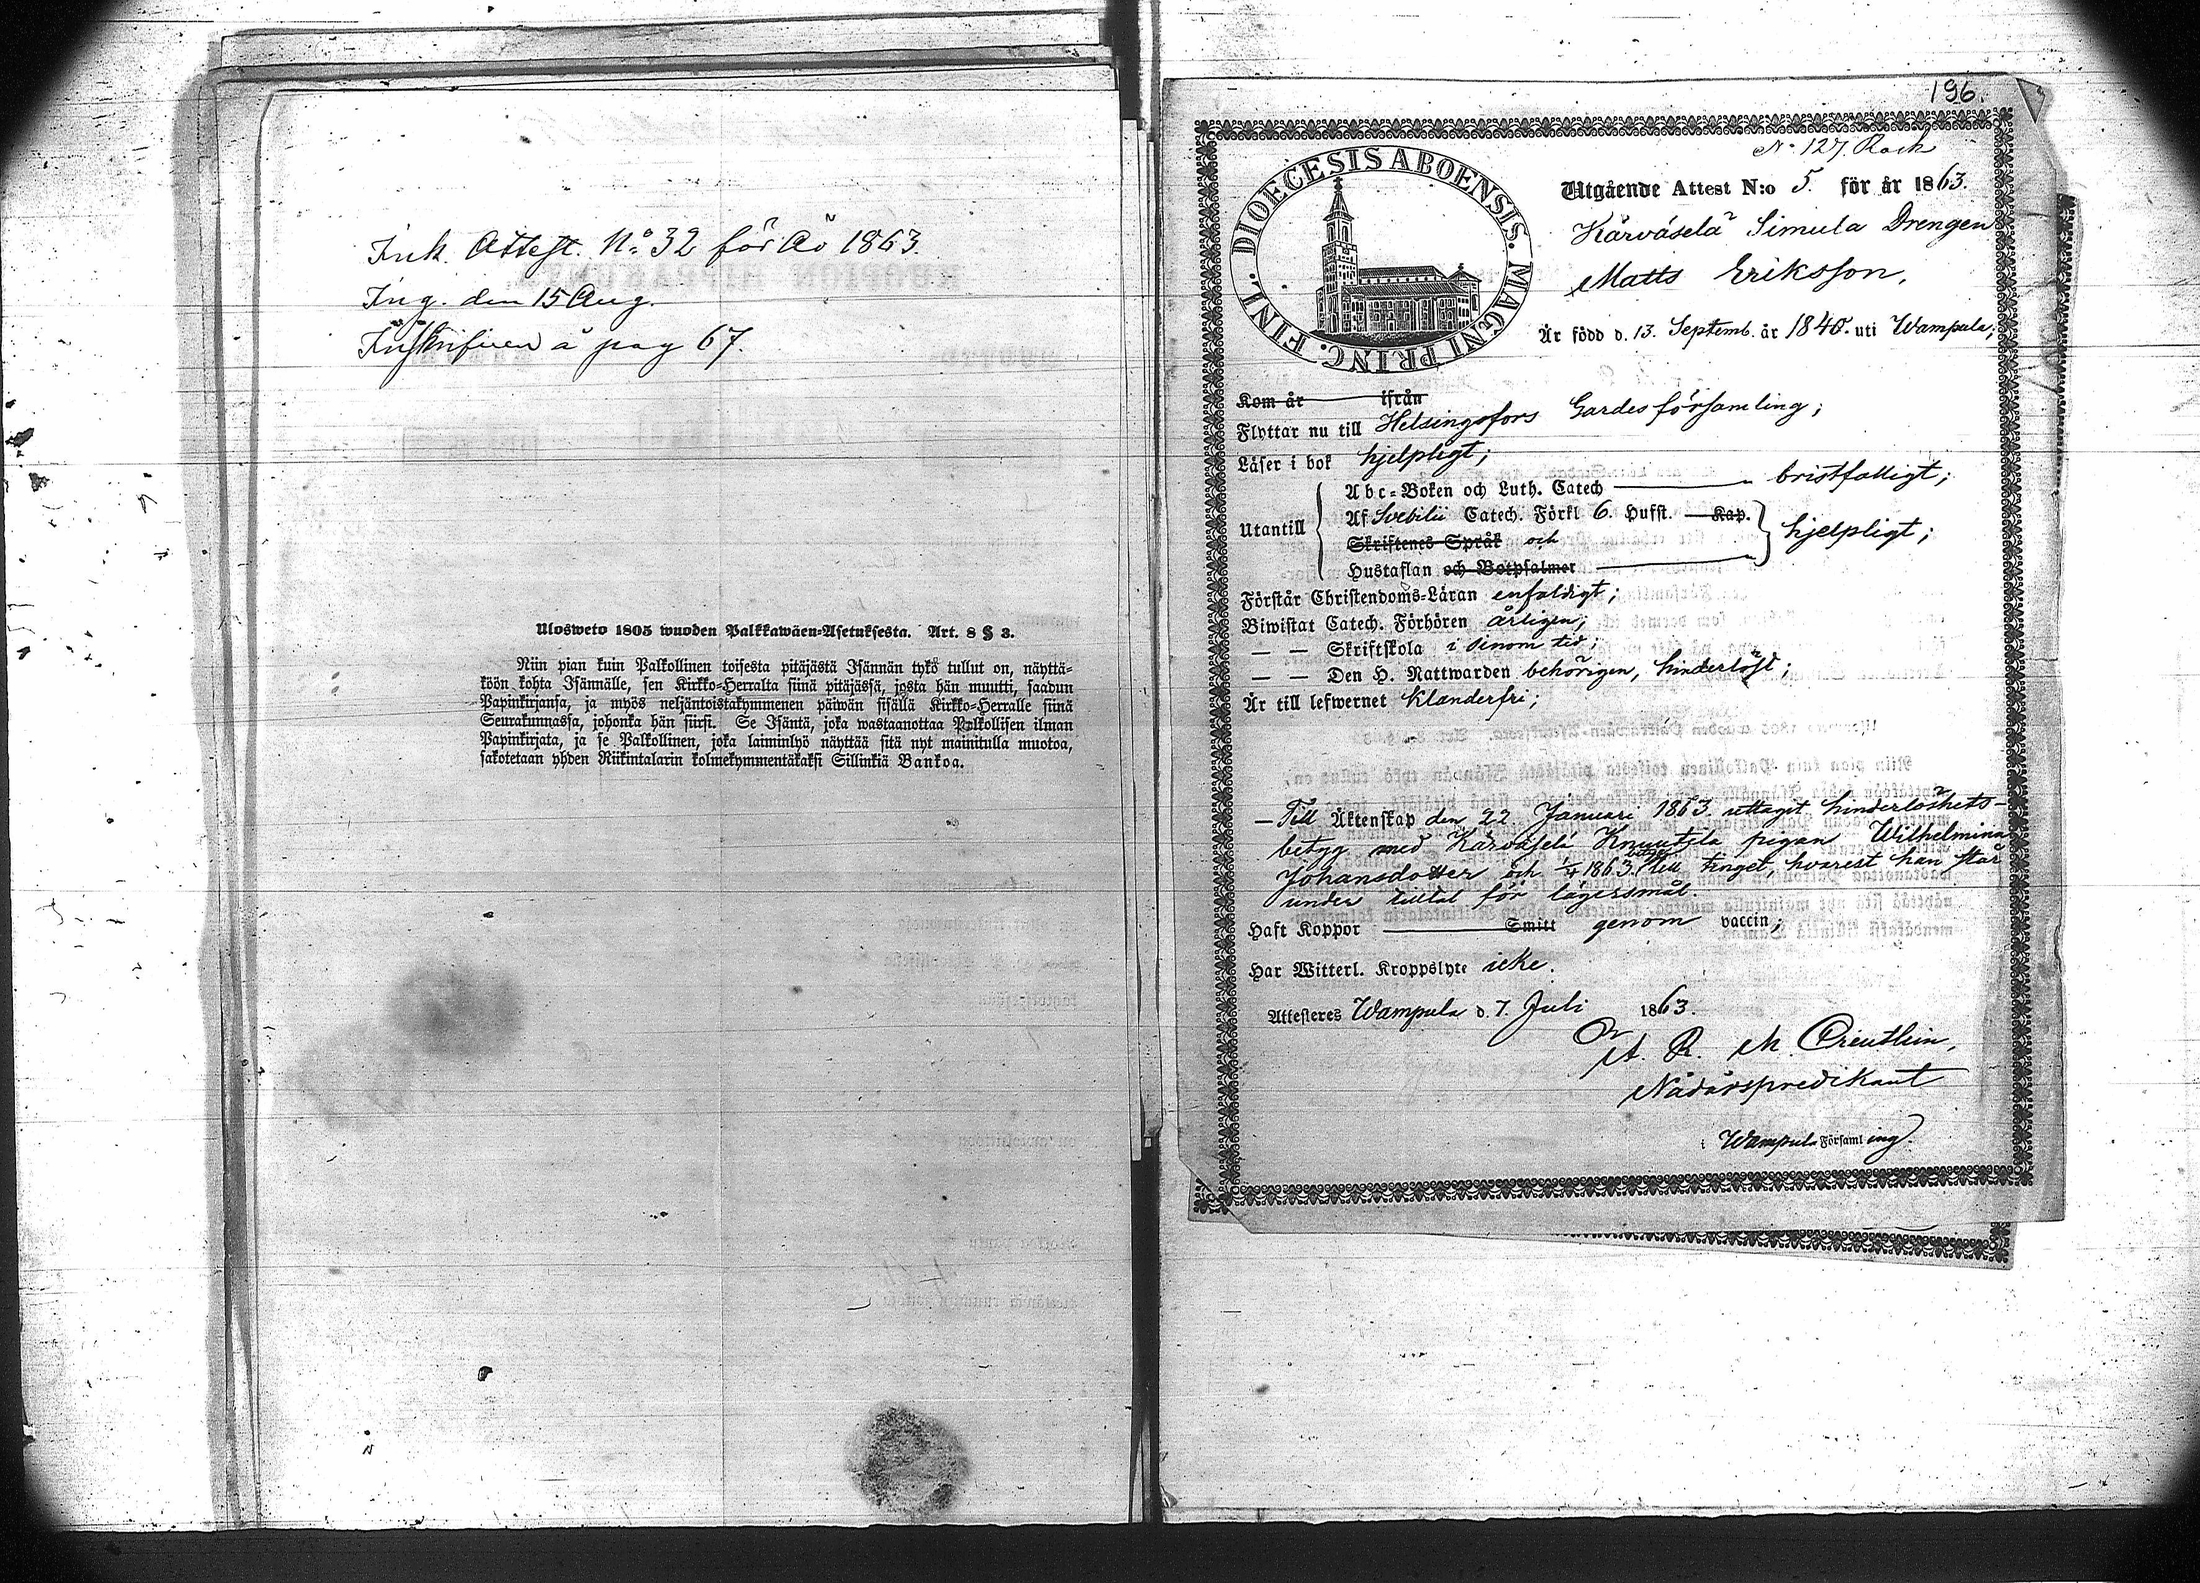 Ink. Attest. No 32 för År 1863.
Ing. den 15 Aug.
Inskrifven å pag 67.
Ulosweto 1805 wuoden Palkkawäen-Asetuksesta. Art. 8 § 3.
Niin pian kuin Palkollinen toisesta pitäjästä Isännän tykö tullut on, näyttä-
köön kohta Isännälle, sen Kirkko-Herralta siinä pitäjässä, josta hän muutti, saadun
Papinkirjansa, ja myös neljäntoistakymmenen päiwän sisällä Kirkko-Herralle siinä
Seurakunnassa, johonka hän siirsi. Se Isäntä, joka wastaanottaa Palkollisen ilman
Papinkirjata, ja se Palkollinen, joka laiminlyö näyttää sitä nyt mainitulla muotoa,
sakotetaan yhden Riikintalarin kolmekymmentäkaksi Sillinkiä Bankoa.
196.
No 127.
DIOECESIS ABOENSIS. MAGNI PRINC. FINL.
Utgående Attest N:o 5. för år 1863.
Kärväselä Simula Drengen
Matts Eriksson,
Är född d. 13. Septemb. år 1840. uti Wampula;
Kom år ifrån
Flyttar nu till Helsingsfors Gardesförsamling;
Läser i bok hjelpligt;
Utantill
Abc-Boken och Luth. Catech bristfälligt;
Af Svebilii Catech. Förkl 6. Hufst. Kap.
Skriftenes Språk och hjelpligt;
Hustaflan och Botpsalmer
Förstår Christendoms-Läran enfaldigt;
Biwistat Catech. Förhören årligen;
— — Skriftskola i sinom tid;
— — Den H. Nattwarden behörigen, hinderlöst;
Är till lefwernet klanderfri;
— Till Äktenskap den 22. Januari 1863 uttagit hinderlöshets-
betyg med Kärväselä Knuutila pigan Wilhelmina
Johansdotter och 1/4 1863 betyg till tinget, hvarest han står
under tilltal för lägersmål
Haft Koppor Smitt genom vaccin;
Har Witterl. Kroppslyte icke.
Attesteres Wampula d. 7. Juli 1863.
A. R. M. Creutlein,
Nådårspredikant
i Wampula Församling.